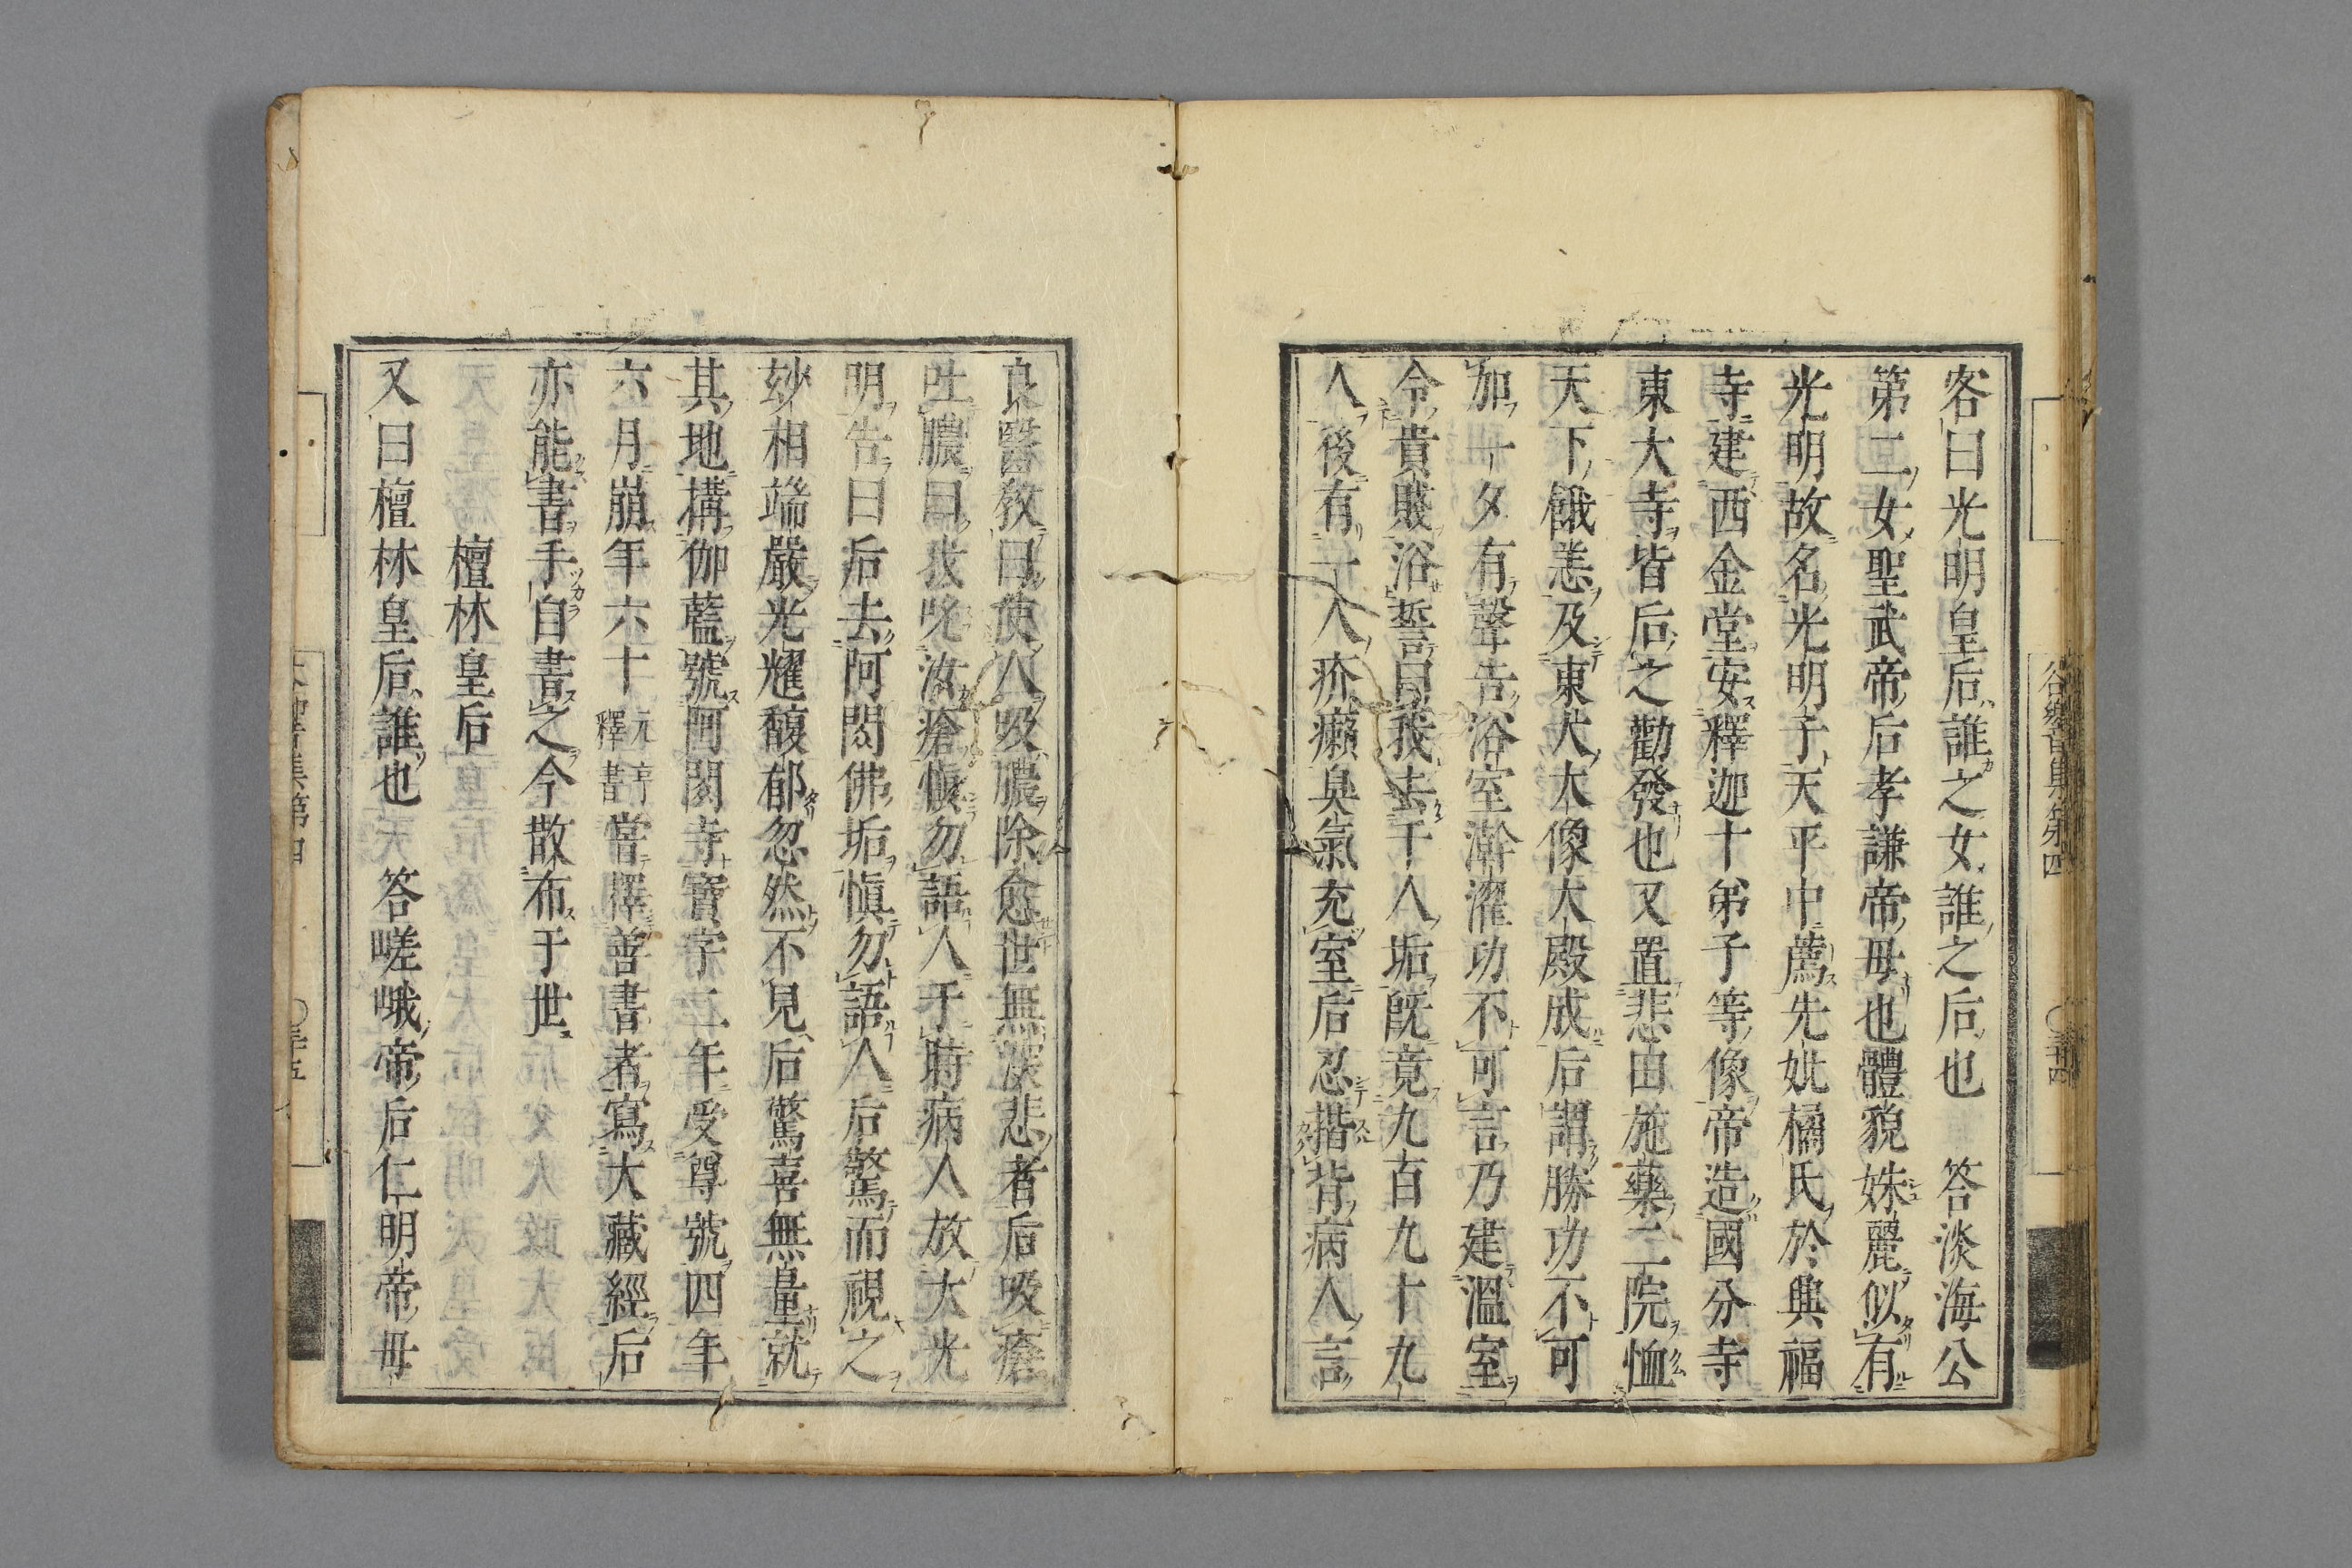 客曰光明皇后誰之女誰之后也　答淡海公
第二女聖武帝后孝謙帝母也體貌姝麗似有
光明故名光明子天平中薦先妣橘氏於興福
寺建西金堂安釋迦十弟子等像帝造國分寺
東大寺皆后之勸發也又置悲田施藥二院恤
天下餓恙及東大大像大殿成后謂勝功不可
加一夕有聲告浴室澣濯功不可言乃建溫室
令貴賤浴誓曰我去千人垢既竟九百九十九
人後有一人疥癩臭氣充室后忍揩背病人言
良醫教曰使人吸膿除愈世無深悲者后吸瘡
吐膿曰我吮汝瘡愼勿語人于時病人放大光
明告曰后去阿閦佛垢愼勿語人后驚而視之
玅相端嚴光耀馥郁忽然不見后驚喜無量就
其地搆伽藍號阿閦寺寶字二年受尊號四年
六月崩年六十元亨釋書嘗擇善書者寫大藏經后
亦能書手自書之今散布于世
檀林皇后
又曰檀林皇后誰也　答嵯峨帝后仁明帝母
谷響音集第四
〇三十四
集第四
〇三十五